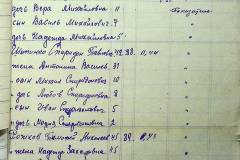 дочь Вера Михайловна 11
сын Василь Михайлович 7
дочь Надежда Михайловна 5
Спиридон Павлов 42. 38. 0,44
жена Антонина Василь. 31
сын Михаил Спиридонов 10
дочь Любовь Спиридонова 8
сын Иван Спиридонов 5
дочь Мария Спиридоновна 2
45 38.
жена Надежда Захаровна 45